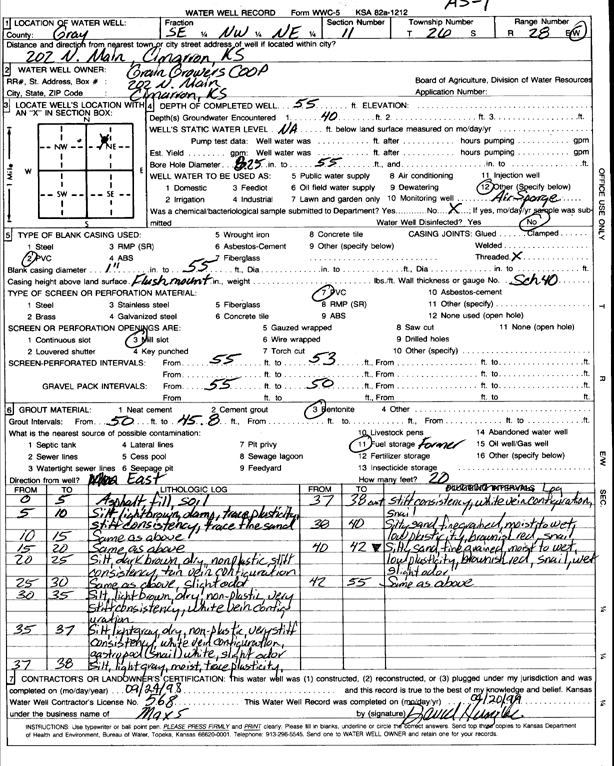 AS-1
WATER WELL RECORD Form WWC-5 KSA 82a-1212
1 LOCATION OF WATER WELL: Fraction Section Number Township Number Range Number
County: Gray SE ¼ NW ¼ NE ¼ 11 T 26 S R 28 E/W
Distance and direction from nearest town or city street address of well if located within city?
202 N. Main Cimarron, KS
2 WATER WELL OWNER: Grain Growers COOP
RR#, St. Address, Box # : 202 N. Main Board of Agriculture, Division of Water Resources
City, State, ZIP Code : Cimarron, KS Application Number:
3 LOCATE WELL'S LOCATION WITH AN "X" IN SECTION BOX:
N
NW NE
W E
SW SE
S
1 Mile
4 DEPTH OF COMPLETED WELL 55 ft. ELEVATION:
Depth(s) Groundwater Encountered 1 40 ft. 2 ft. 3 ft.
WELL'S STATIC WATER LEVEL NA ft. below land surface measured on mo/day/yr
Pump test data: Well water was ft. after hours pumping gpm
Est. Yield gpm: Well water was ft. after hours pumping gpm
Bore Hole Diameter 8.25 in. to 55 ft., and in. to ft.
WELL WATER TO BE USED AS: 5 Public water supply 8 Air conditioning 11 Injection well
1 Domestic 3 Feedlot 6 Oil field water supply 9 Dewatering 12 Other (Specify below)
2 Irrigation 4 Industrial 7 Lawn and garden only 10 Monitoring well Air Sparge
Was a chemical/bacteriological sample submitted to Department? Yes No X ; If yes, mo/day/yr sample was submitted
Water Well Disinfected? Yes No
5 TYPE OF BLANK CASING USED: 5 Wrought iron 8 Concrete tile CASING JOINTS: Glued Clamped
1 Steel 3 RMP (SR) 6 Asbestos-Cement 9 Other (specify below) Welded
2 PVC 4 ABS 7 Fiberglass Threaded X
Blank casing diameter 1" in. to 55 ft., Dia in. to ft., Dia in. to ft.
Casing height above land surface Flushmount in., weight lbs./ft. Wall thickness or gauge No. Sch 40
TYPE OF SCREEN OR PERFORATION MATERIAL: 7 PVC 10 Asbestos-cement
1 Steel 3 Stainless steel 5 Fiberglass 8 RMP (SR) 11 Other (specify)
2 Brass 4 Galvanized steel 6 Concrete tile 9 ABS 12 None used (open hole)
SCREEN OR PERFORATION OPENINGS ARE: 5 Gauzed wrapped 8 Saw cut 11 None (open hole)
1 Continuous slot 3 Mill slot 6 Wire wrapped 9 Drilled holes
2 Louvered shutter 4 Key punched 7 Torch cut 10 Other (specify)
SCREEN-PERFORATED INTERVALS: From 55 ft. to 53 ft., From ft. to ft.
From ft. to ft., From ft. to ft.
GRAVEL PACK INTERVALS: From 55 ft. to 50 ft., From ft. to ft.
From ft. to ft., From ft. to ft.
6 GROUT MATERIAL: 1 Neat cement 2 Cement grout 3 Bentonite 4 Other
Grout Intervals: From 50 ft. to 45.8 ft., From ft. to ft., From ft. to ft.
What is the nearest source of possible contamination: 10 Livestock pens 14 Abandoned water well
1 Septic tank 4 Lateral lines 7 Pit privy 11 Fuel storage Former 15 Oil well/Gas well
2 Sewer lines 5 Cess pool 8 Sewage lagoon 12 Fertilizer storage 16 Other (specify below)
3 Watertight sewer lines 6 Seepage pit 9 Feedyard 13 Insecticide storage
Direction from well? East How many feet? 20
FROM TO LITHOLOGIC LOG FROM TO PLUGGING INTERVALS Log
0 5 Asphalt fill soil
5 10 Silt, light brown, damp, trace plasticity, stiff consistency, trace fine sand
10 15 Same as above
15 20 Same as above
20 25 Silt, dark brown, dry, nonplastic, stiff consistency, tan vein configuration
25 30 Same as above, slight odor
30 35 Silt, light brown, dry, non-plastic, very stiff consistency, white vein configuration
35 37 Silt, light gray, dry, non-plastic, very stiff consistency, white vein configuration, gastropod (snail) white, slight odor
37 38 Silt, light gray, moist, trace plasticity,
37 38 cont stiff consistency, white vein configuration, snail
38 40 Silty sand fine grained, moist to wet, low plasticity, brownish red, snail
40 42 Silty sand fine grained, moist to wet, low plasticity, brownish red, snail, wet slight odor
42 55 Same as above
7 CONTRACTOR'S OR LANDOWNER'S CERTIFICATION: This water well was (1) constructed, (2) reconstructed, or (3) plugged under my jurisdiction and was
completed on (mo/day/year) 09/24/98 and this record is true to the best of my knowledge and belief. Kansas
Water Well Contractor's License No. 568 This Water Well Record was completed on (mo/day/yr) 04/20/99
under the business name of Max's by (signature) David
INSTRUCTIONS: Use typewriter or ball point pen. PLEASE PRESS FIRMLY and PRINT clearly. Please fill in blanks, underline or circle the correct answers. Send top three copies to Kansas Department
of Health and Environment, Bureau of Water, Topeka, Kansas 66620-0001. Telephone: 913-296-5545. Send one to WATER WELL OWNER and retain one for your records.
OFFICE USE ONLY
T
R
E/W
SEC.
¼
¼
¼